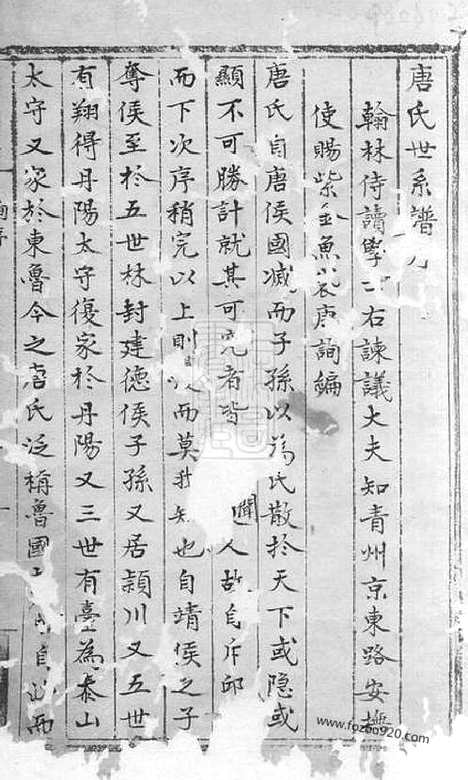 唐氏世系譜
翰林侍讀學士右諫議大夫知青州京東路安撫
使賜紫金魚袋唐詢編
唐氏自唐侯國滅而子孫以為氏散於天下或隱或
顯不可勝計就其可究者皆聞人故自斥邱
而下次序稍完以上則而莫知也自靖侯之子
奪侯至於五世林封建德侯子孫又居潁川又五世
有翔得丹陽太守復家於丹陽又三世有臺為泰山
太守又家於東魯今之唐氏泛稱魯國自出而
www.foz6o920.com